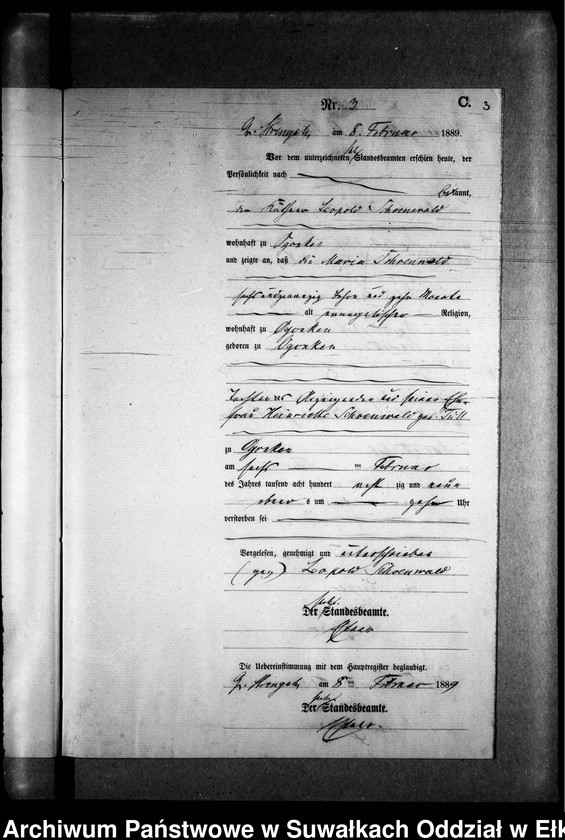 Nr. 3 C. 3
Gr. Strengeln am 8. Februar 1889.
Vor dem unterzeichneten Standesbeamten erschien heute, der
Persönlichkeit nach
bekannt,
der Käthner Leopold Schoenwald
wohnhaft zu Ogonken
und zeigte an, daß die Maria Schoenwald
sechsundzwanzig Jahre und zehn Monate
alt evangelischer Religion,
wohnhaft zu Ogonken
geboren zu Ogonken
Tochter des Anzeigenden und seiner Ehe-
frau Heinriette Schoenwald geb. Tull
zu Ogonken
am sechs ten Februar
des Jahres tausend acht hundert acht zig und neun
abends um zehn Uhr
verstorben sei
Vorgelesen, genehmigt und unterschrieben
(gez) Leopold Schoenwald
Der Standesbeamte.
Die Uebereinstimmung mit dem Hauptregister beglaubigt.
Gr. Strengeln am 8ten Februar 1889
Der Standesbeamte.
Archiwum Państwowe w Suwałkach Oddział w Ełk